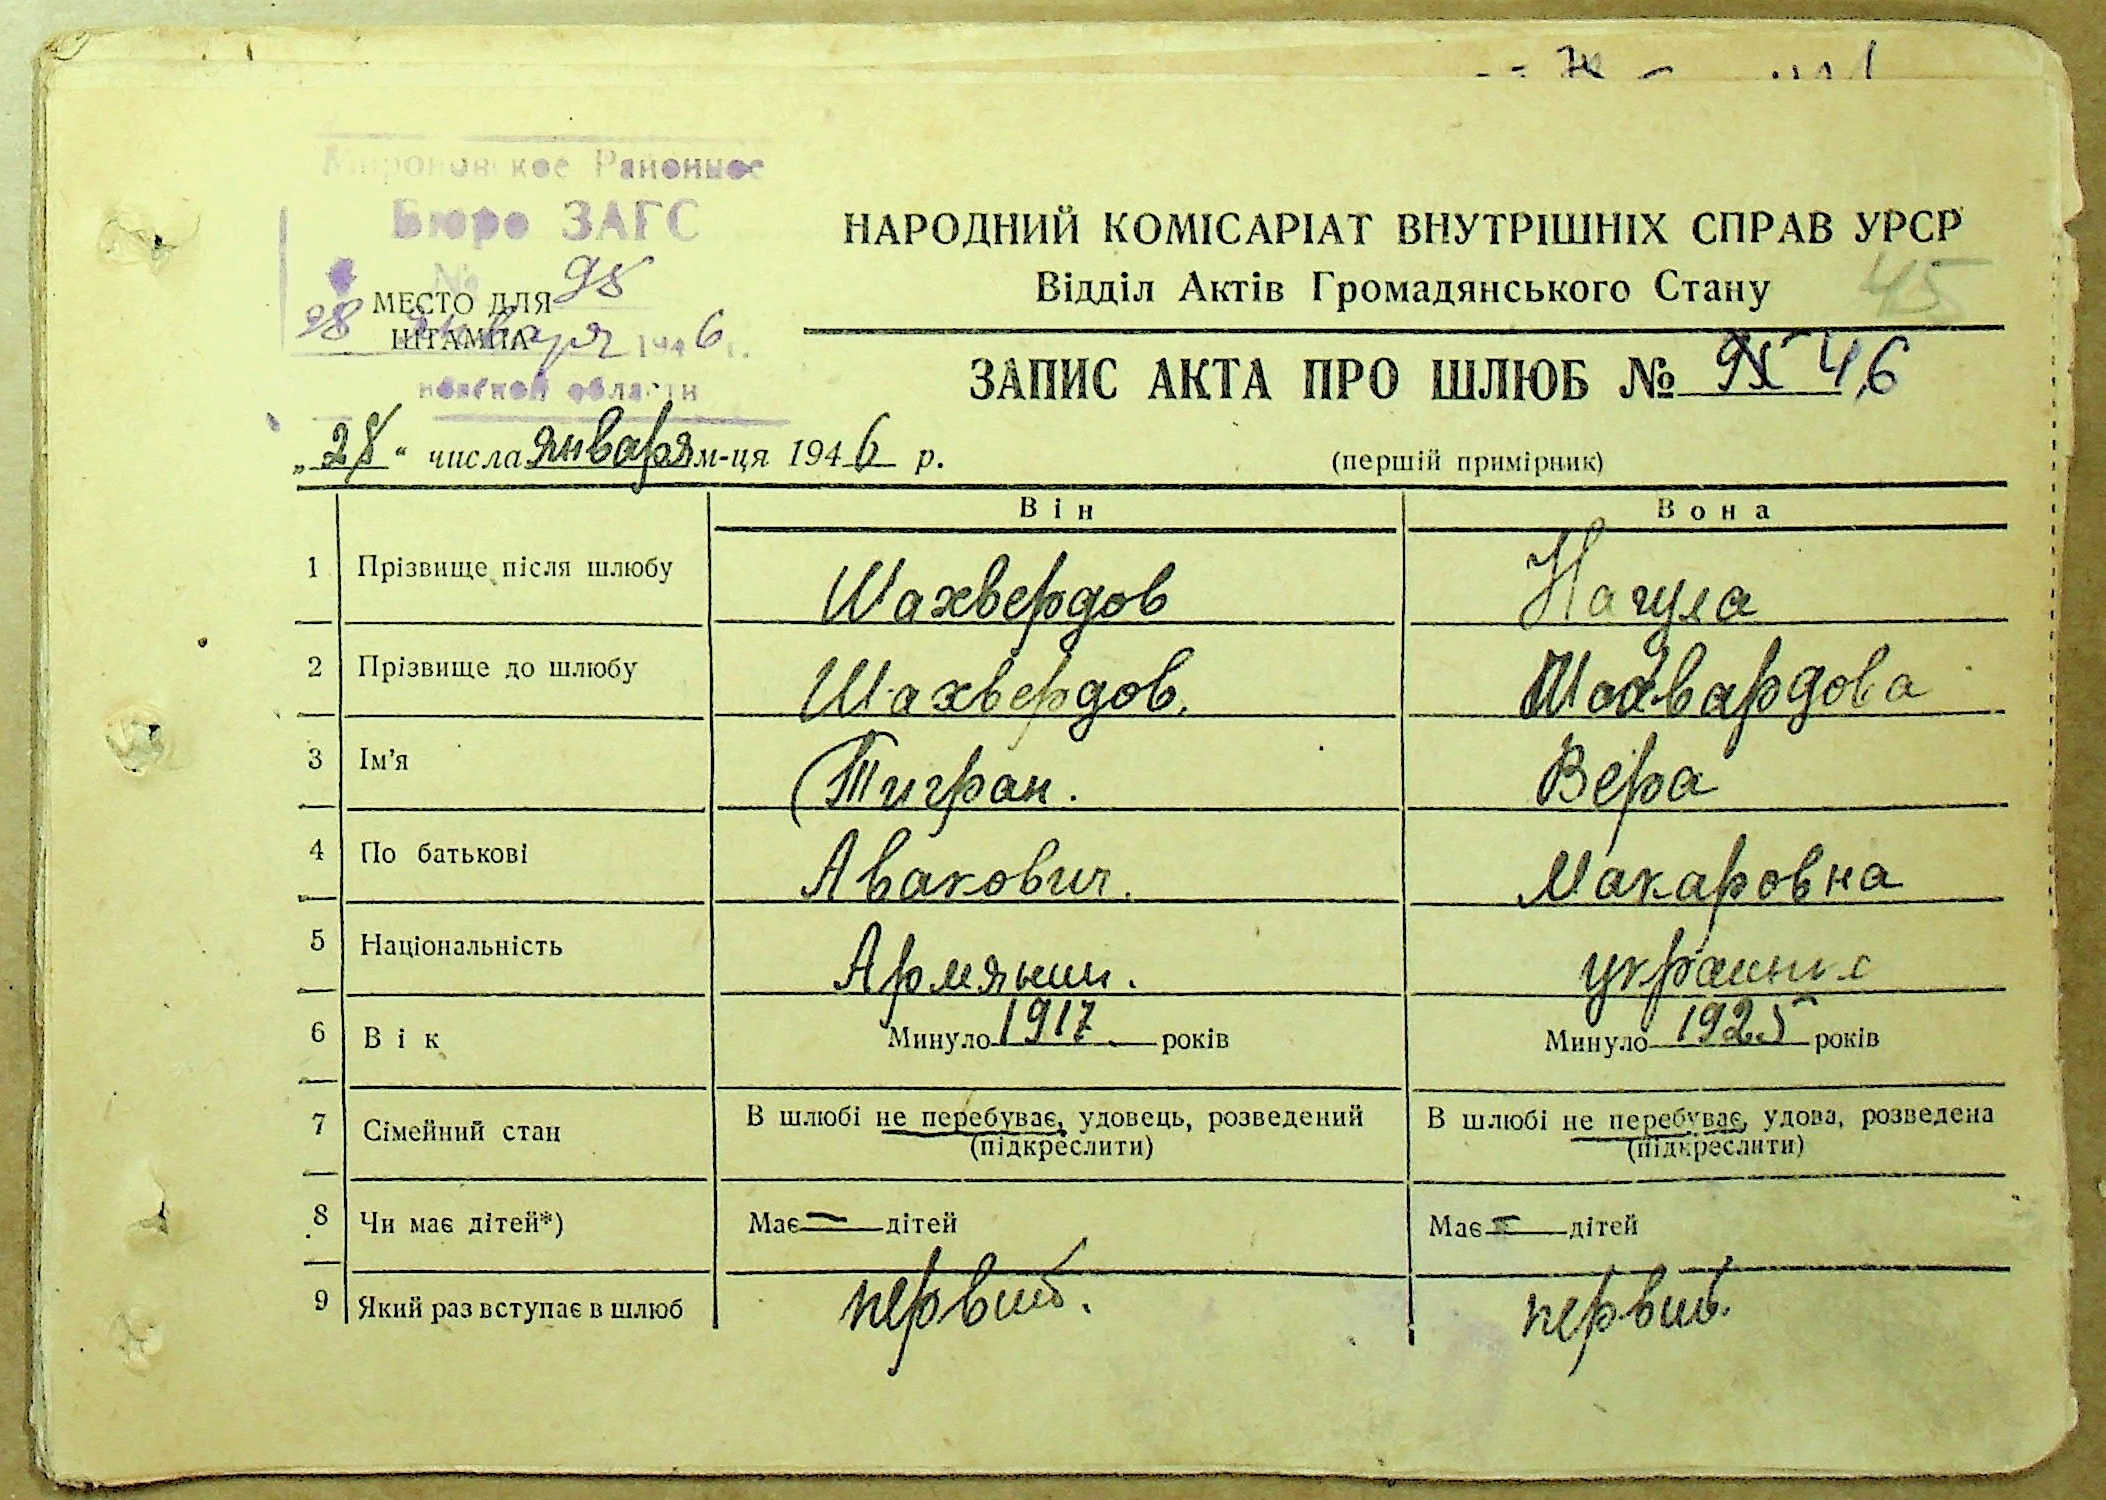 Мироновское Районное
Бюро ЗАГС
№ 98
МЕСТО ДЛЯ
ШТАМПА
28 января 1946 г.
области
НАРОДНИЙ КОМІСАРІАТ ВНУТРІШНІХ СПРАВ УРСР
Відділ Актів Громадянського Стану
45
ЗАПИС АКТА ПРО ШЛЮБ № 46
„28“ числа января м-ця 1946 р.
(першій примірник)
Він Вона
1 Прізвище після шлюбу Шахвердов Нагула
2 Прізвище до шлюбу Шахвердов. Шахвардова
3 Ім'я Тигран. Вера
4 По батькові Авакович. Макаровна
5 Національність Армянин. украинка
6 Вік Минуло 1917 років Минуло 1925 років
7 Сімейний стан В шлюбі не перебуває, удовець, розведений В шлюбі не перебуває, удова, розведена
(підкреслити) (підкреслити)
8 Чи має дітей*) Має — дітей Має — дітей
9 Який раз вступає в шлюб первий. первий.